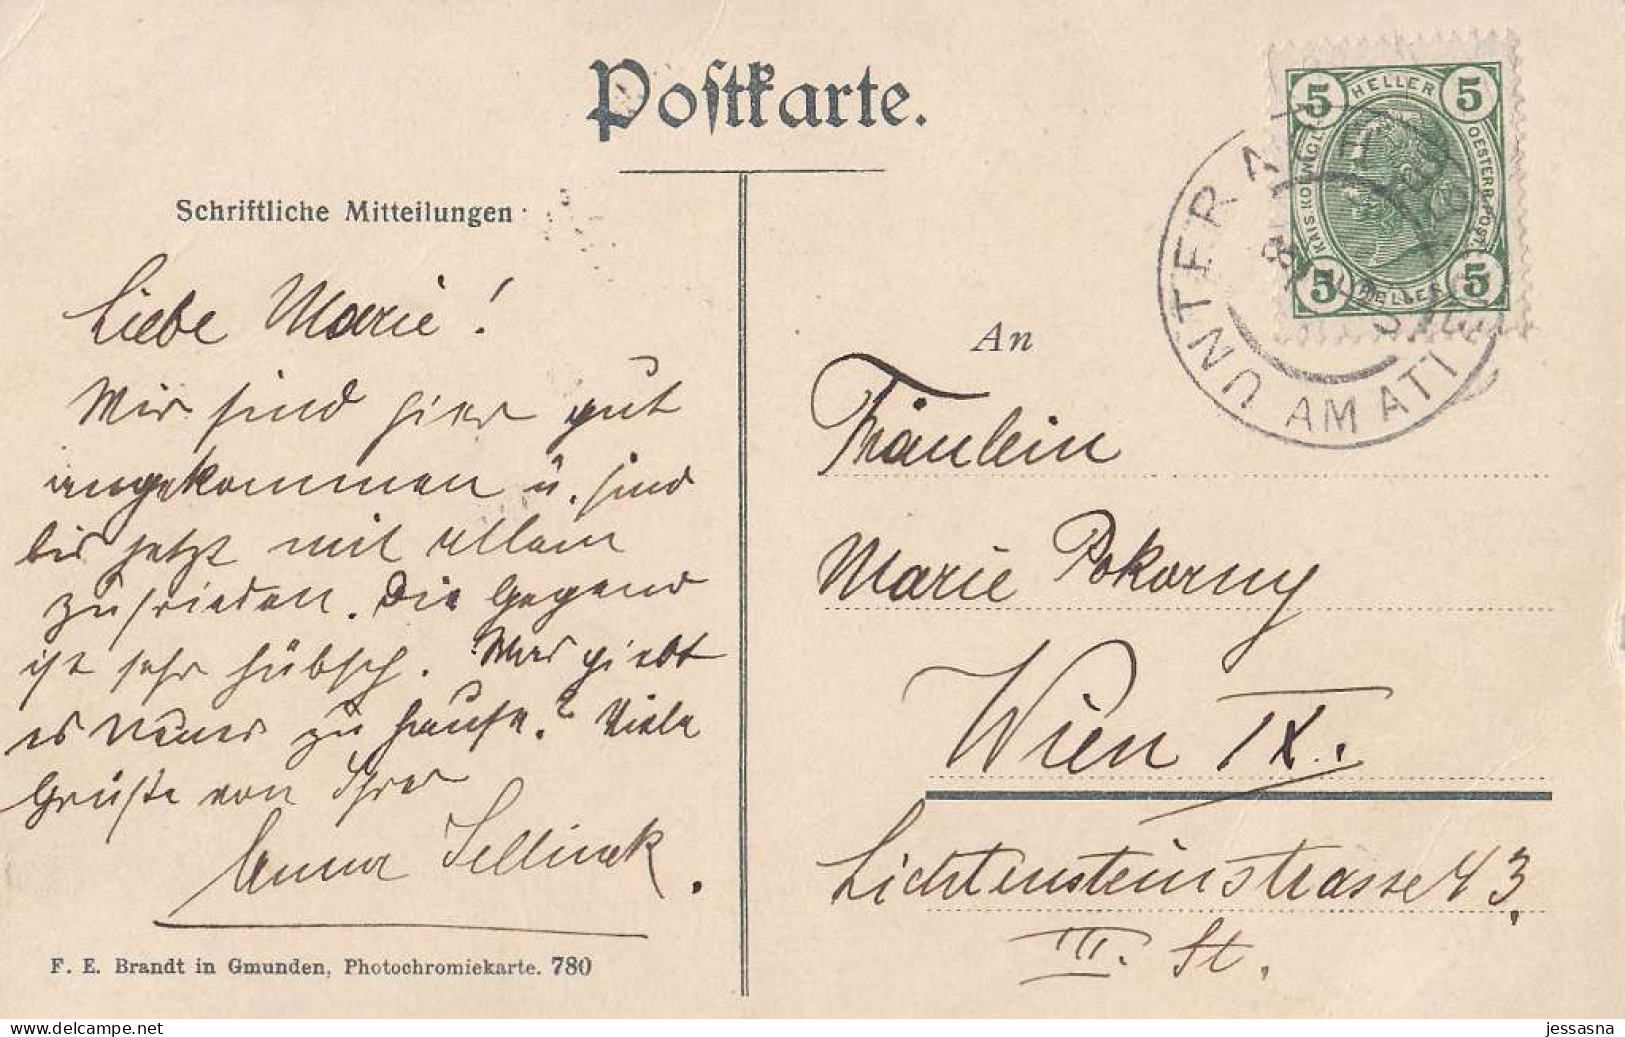 Postkarte.
Schriftliche Mitteilungen
Liebe Marie!
Wir sind hier gut
angekommen u. sind
bis jetzt mit allem
zufrieden. Die Gegend
ist sehr hübsch. Was giebt
es Neues zu Hause? Viele
Grüße von Ihrer
Anna Sellinek.
F. E. Brandt in Gmunden, Photochromiekarte. 780
5 HELLER 5
KAIS. KOENIGL. OESTERR. POST
5 HELLER 5
UNTERACH
AM ATTERSEE
An
Fräulein
Marie Pokorny
Wien IX.
Lichtensteinstrasse 43,
III. St.
Mehr Bilder auf oldthing.com
jessasna